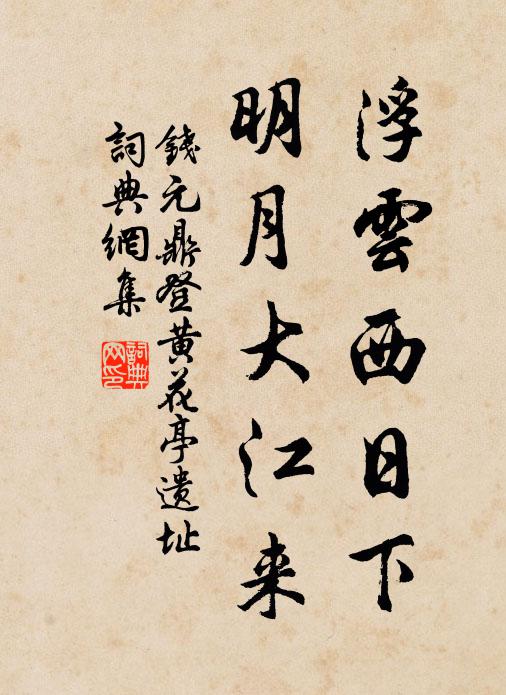 浮雲西日下
明月大江来
錢元鼎登黄花亭遺址
詞典網集
詞典網印